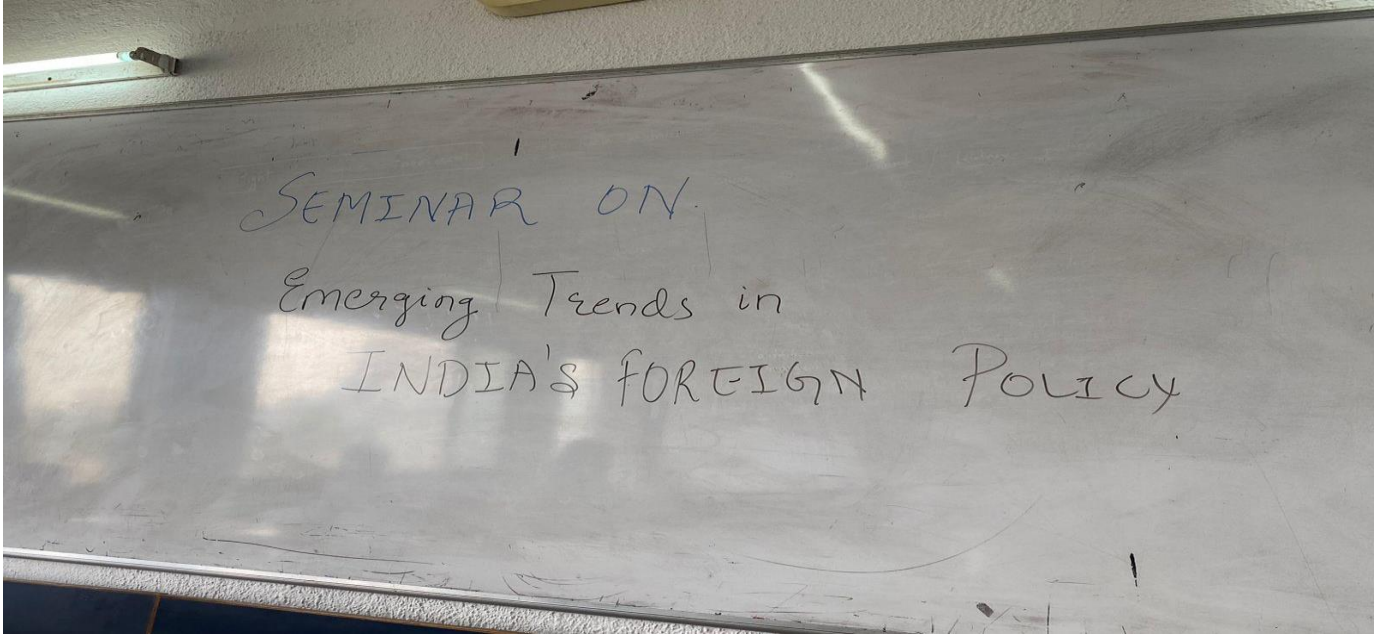 SEMINAR ON
Emerging Trends in
INDIA'S FOREIGN POLICY